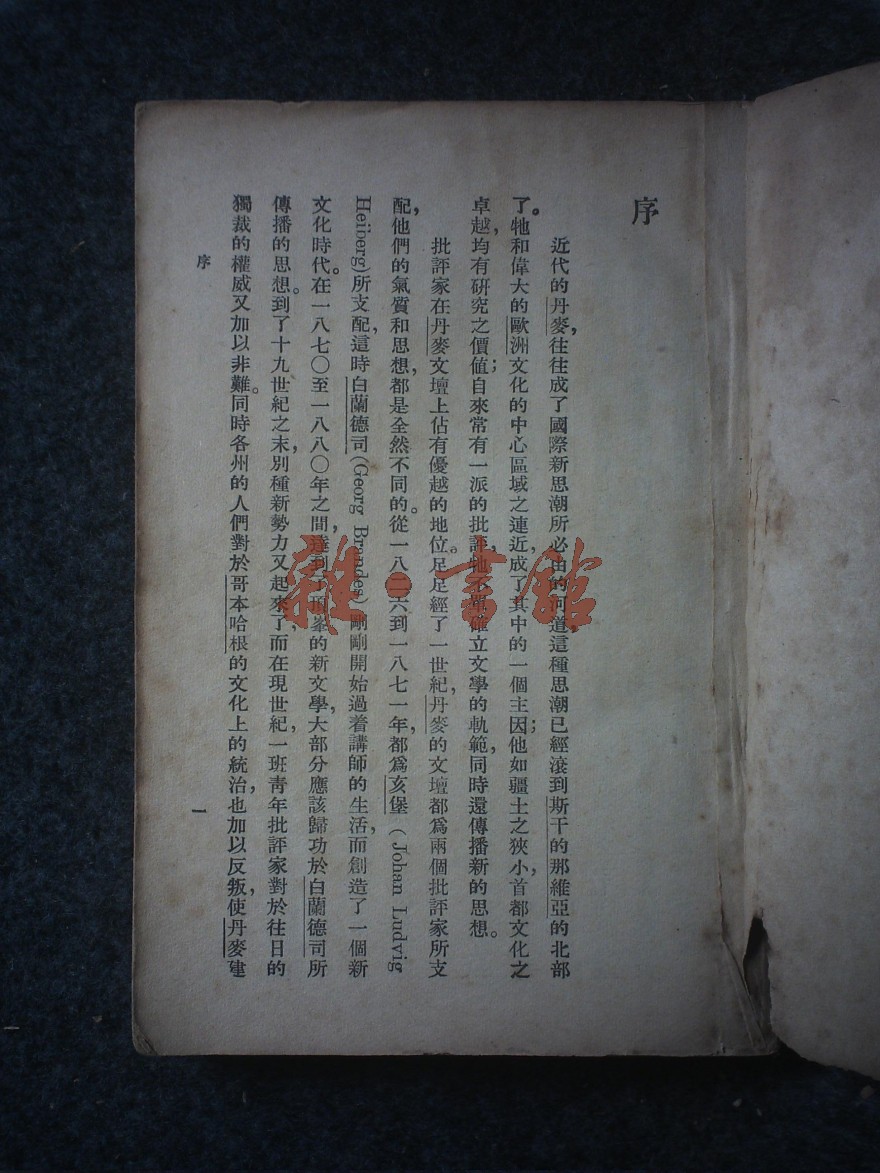 序
近代的丹麥,往往成了國際新思潮所必由的河道,這種思潮已經滾到斯干的那維亞的北部
了。牠和偉大的歐洲文化的中心區域之連近,成了其中的一個主因;他如疆土之狹小,首都文化之
卓越,均有研究之價值;自來常有一派的批評,牠不單確立文學的軌範,同時還傳播新的思想。
批評家在丹麥文壇上佔有優越的地位。足足經了一世紀,丹麥的文壇都爲兩個批評家所支
配,他們的氣質和思想,都是全然不同的。從一八二六到一八七一年,都爲亥堡 (Johan Ludvig
Heiberg)所支配,這時白蘭德司(Georg Brandes)剛剛開始過着講師的生活,而創造了一個新
文化時代。在一八七〇至一八八〇年之間,達到了頂峯的新文學,大部分應該歸功於白蘭德司所
傳播的思想。到了十九世紀之末,別種新勢力又起來了,而在現世紀,一班靑年批評家對於往日的
獨裁的權威又加以非難。同時各州的人們對於哥本哈根的文化上的統治,也加以反叛,使丹麥建
序
一
雜·書館